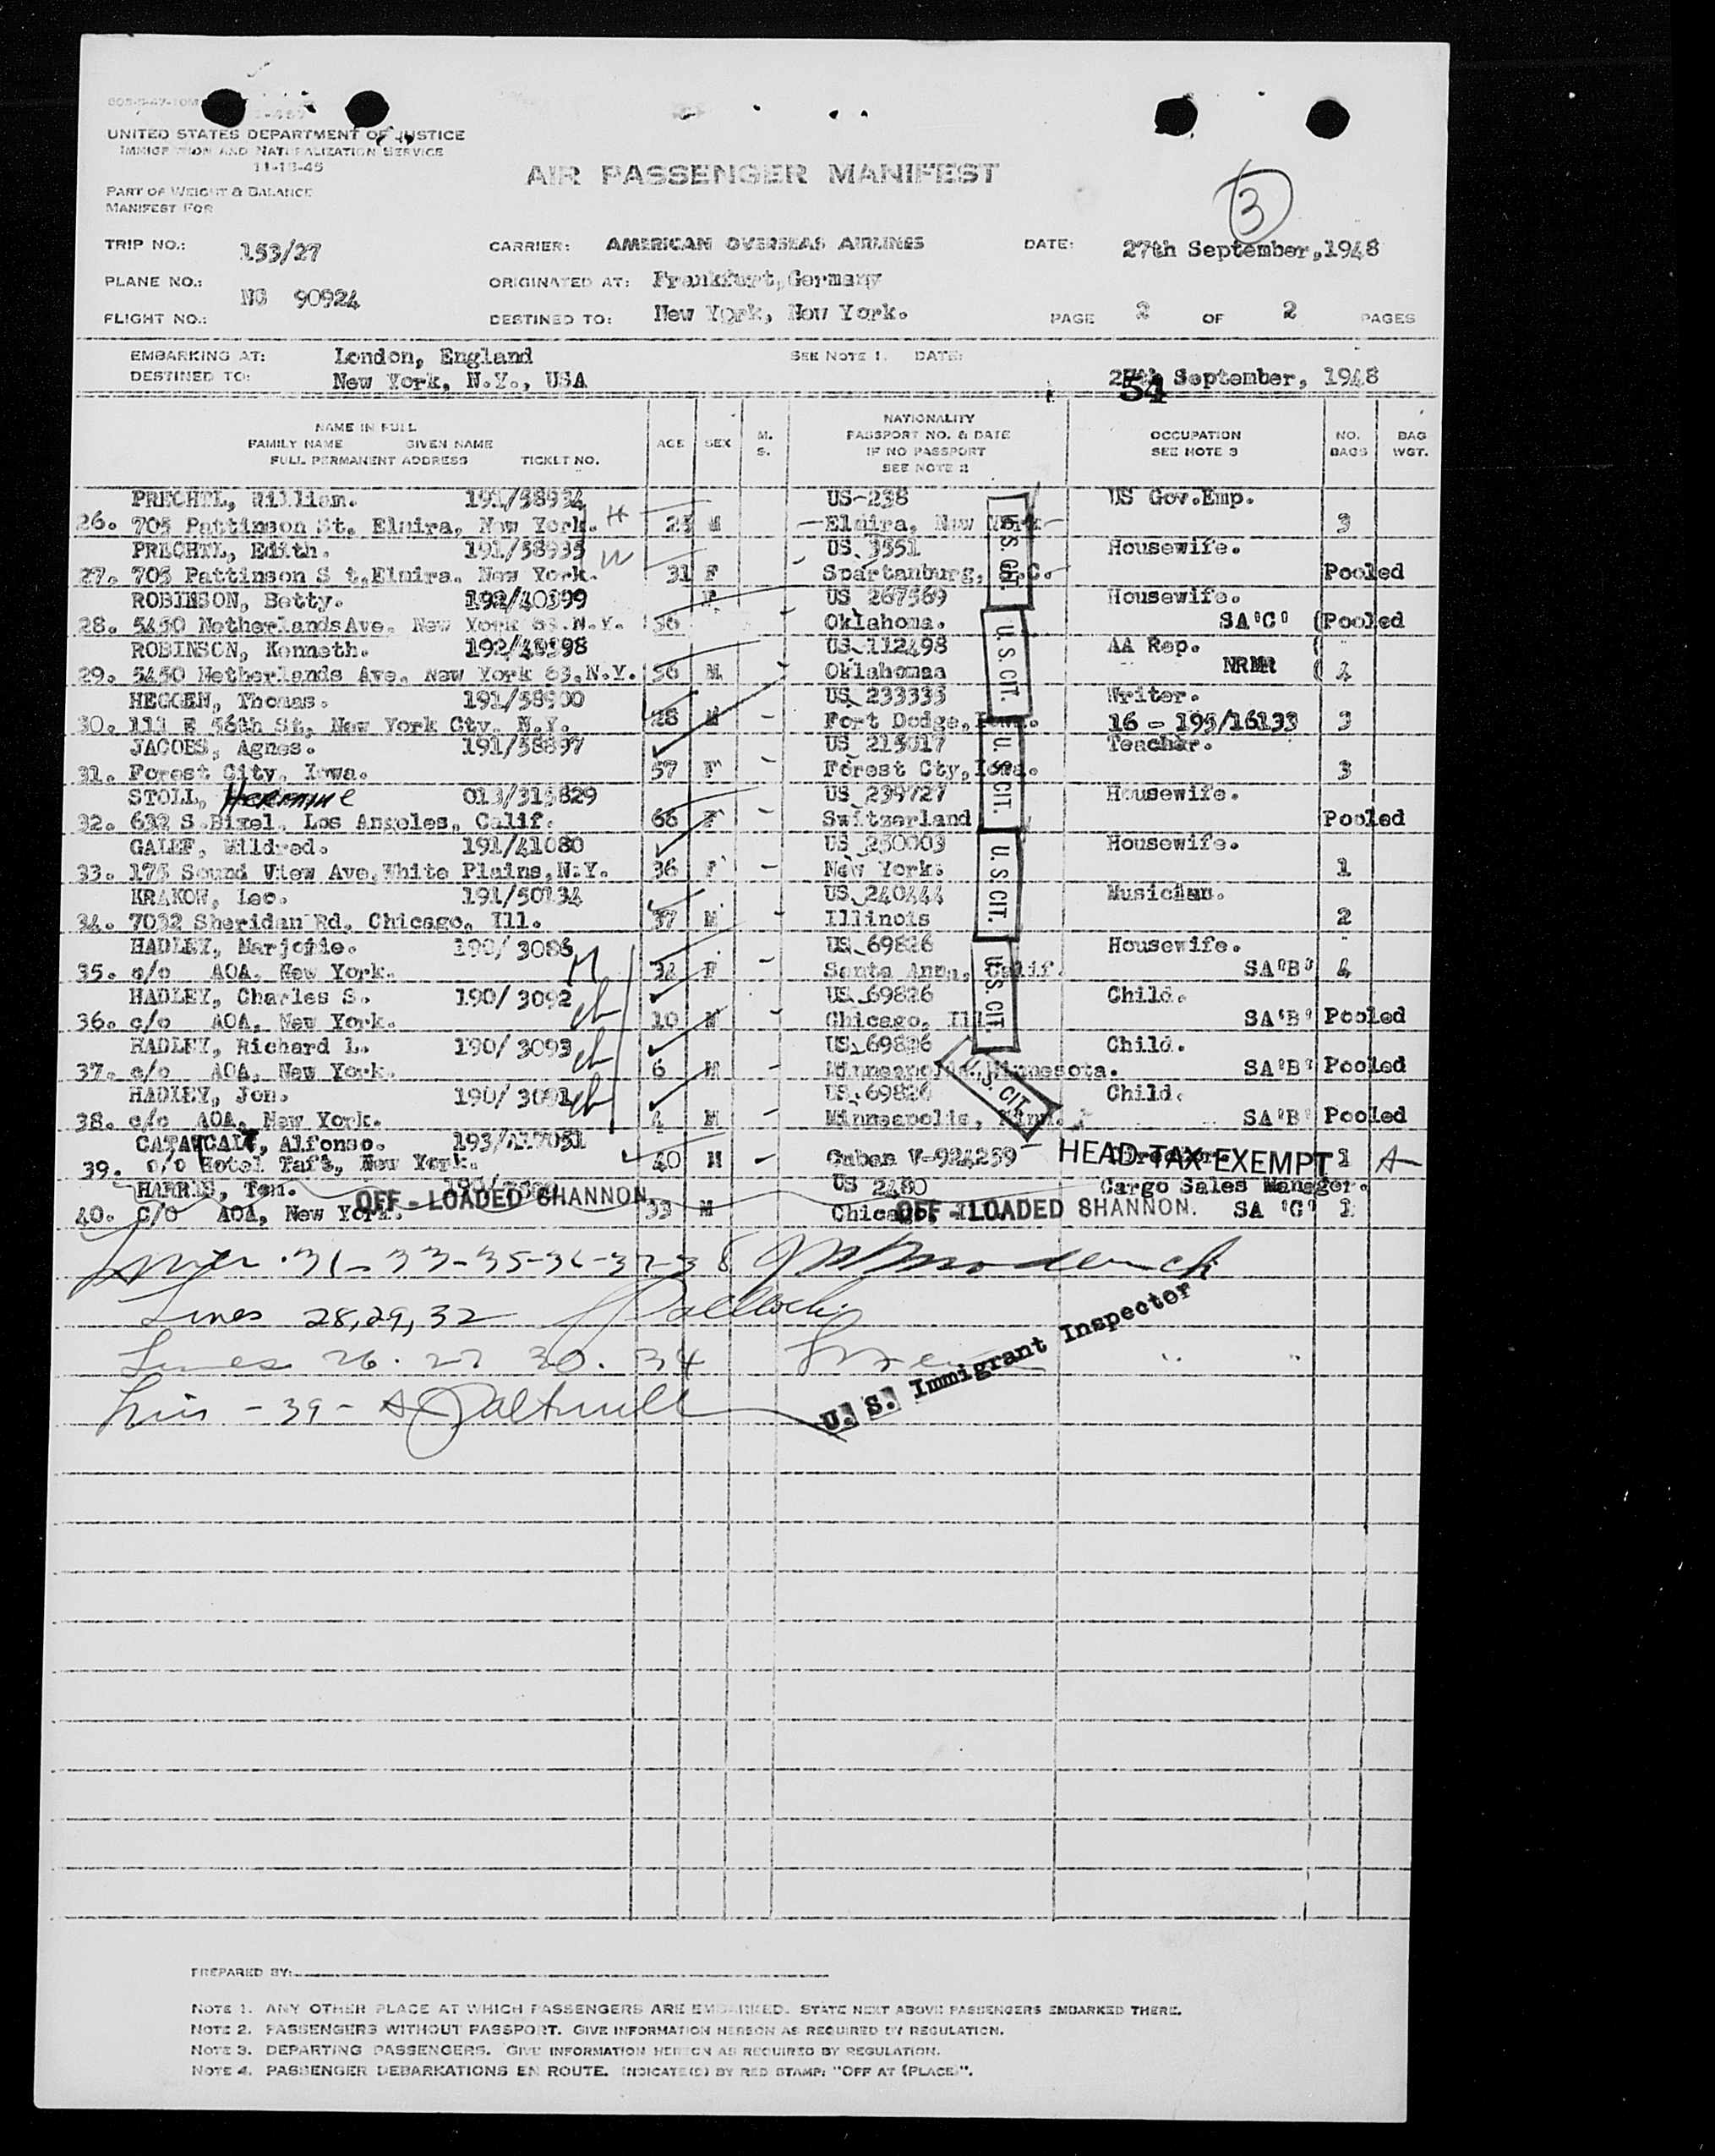 UNITED STATES DEPARTMENT OF JUSTICE
IMMIGRATION AND NATURALIZATION SERVICE
11-13-45
PART OF WEIGHT & BALANCE
MANIFEST FOR
AIR PASSENGER MANIFEST
3
TRIP NO.: 153/27 CARRIER: AMERICAN OVERSEAS AIRLINES DATE: 27th September, 1948
PLANE NO.: NC 90924 ORIGINATED AT: Frankfurt, Germany
FLIGHT NO.: DESTINED TO: New York, New York. PAGE 2 OF 2 PAGES
EMBARKING AT: London, England SEE NOTE 1. DATE:
DESTINED TO: New York, N.Y., USA September, 1948
54
NAME IN FULL
FAMILY NAME GIVEN NAME
FULL PERMANENT ADDRESS TICKET NO. AGE SEX M. S. NATIONALITY PASSPORT NO. & DATE IF NO PASSPORT SEE NOTE 2 OCCUPATION SEE NOTE 3 NO. BAGS BAG WGT.
PRECHTL, William. 191/58934 US-238 US Gov.Emp.
26. 705 Pattinson St. Elmira, New York. M Elmira, New York 3
PRECHTL, Edith. 191/58935 US 3551 Housewife.
27. 705 Pattinson S t,Elmira. New York. 31 F Spartanburg, S.C. Pooled
ROBINSON, Betty. 192/40399 US 267569 Housewife.
28. 5450 NetherlandsAve. New York 63.N.Y. 36 F SA'C' (Pooled
Oklahoma.
ROBINSON, Kenneth. 192/40398 US 112498 AA Rep.
29. 5450 Netherlands Ave. New York 63.N.Y. 36 M Oklahomaa NRMR ( 4
HEGGEN, Thomas. 191/58900 US 233335 Writer.
30. 111 E 56th St, New York Cty. N.Y. 28 M Fort Dodge, Iowa. 16 - 195/16133 3
JACOBS, Agnes. 191/58897 US 215017 Teacher.
31. Forest City. Iowa. 57 F Forest Cty, Iowa. 3
STOLL, Hermine 013/315829 US 239727 Housewife.
32. 632 S.Bixel. Los Angeles, Calif. 66 F Switzerland Pooled
GALEF, Mildred. 191/41080 US 250003 Housewife.
33. 175 Sound View Ave,White Plains,N.Y. 36 F New York. 1
KRAKOW, Leo. 191/50134 US 240444 Musician.
34. 7032 Sheridan Rd. Chicago, Ill. 37 M Illinois 2
HADLEY, Marjorie. 190/ 3086 US 69826 Housewife.
35. c/o AOA. New York. 32 F Santa Anna, Calif. SA"B" 4
HADLEY, Charles S. 190/ 3092 US 69826 Child.
36. c/o AOA, New York. 10 M Chicago, Ill. SA'B' Pooled
HADLEY, Richard L. 190/ 3093 US 69826 Child.
37. c/o AOA, New York. 6 M Minneapolis, Minnesota. SA"B" Pooled
HADLEY, Jon. 190/ 3091 US 69826 Child.
38. c/o AOA, New York. 4 M Minneapolis, Minn. SA'B' Pooled
Alfonso. 193/
39. c/o Hotel Taft, New York. 40 M Cuban V-924259 HEAD TAX EXEMPT 1 A
HARRIS, Tom. US 2480 Cargo Sales Manager.
40. C/O AOA, New York. 33 M Chicago, Ill. SA 'C' 1
OFF - LOADED SHANNON.
OFF - LOADED SHANNON.
U. S. CIT.
U. S. CIT.
U. S. CIT.
U. S. CIT.
U. S. CIT.
U. S. CIT.
31-33-35-36-37-38
Lines 28,29,32
Lines 26. 27 30. 34
39
U. S. Immigrant Inspector
PREPARED BY:
NOTE 1. ANY OTHER PLACE AT WHICH PASSENGERS ARE EMBARKED. STATE NEXT ABOVE PASSENGERS EMBARKED THERE.
NOTE 2. PASSENGERS WITHOUT PASSPORT. GIVE INFORMATION HEREON AS REQUIRED BY REGULATION.
NOTE 3. DEPARTING PASSENGERS. GIVE INFORMATION HEREON AS REQUIRED BY REGULATION.
NOTE 4. PASSENGER DEBARKATIONS EN ROUTE. INDICATE(D) BY RED STAMP: "OFF AT (PLACE)".